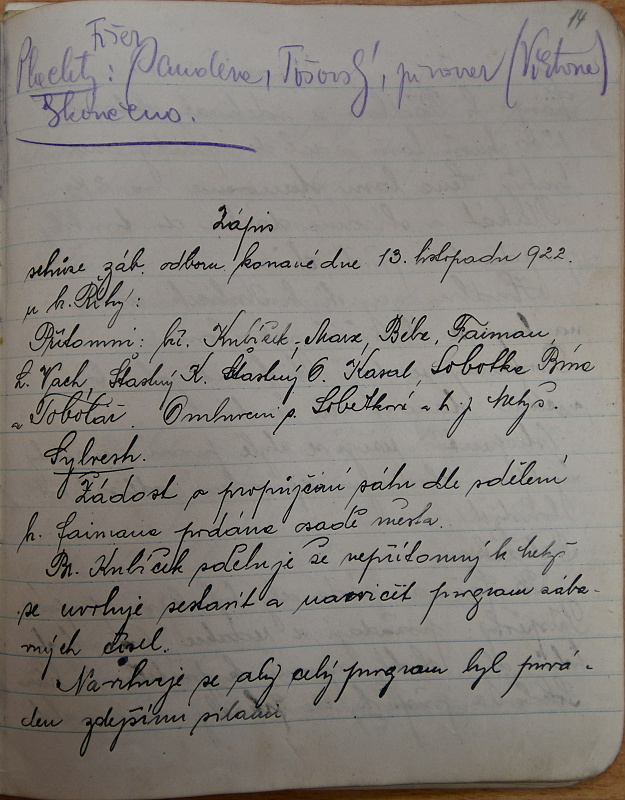 14
Fišer
Plachty: Pandéna, Tošovský, pivovar (Vištova)
Skončeno.
Zápis
schůze záb. odboru konané dne 13. listopadu 922.
u h. Říhý:
Přítomni: bř. Kubíček, Marx, Bébr, Faiman,
L. Vach, Štastný K. Štastný O. Kasal, Sobotka Bína
a Tobolář. Omluveni s. Sobotková a b. j. Netyš.
Sylvestr.
Žádost o propůjčení sálu dle sdělení
b. faimana podána radě města.
Br. Kubíček sděluje že nepřítomný b Netyš
se uvoluje sestavit a nacvičit program zába-
vných čísel.
Navrhuje se aby celý program byl prová-
děn zdejšími silami